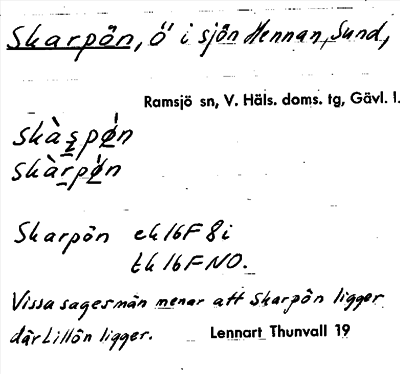 Skarpön, ö i sjön Hennan, Sund,
Ramsjö sn, V. Häls. doms. tg, Gävl. l.
skàs̱pǿ̱n
skàṟpǿ̱n
Skarpön ek 16 F 8i
tk 16 F NO.
Vissa sagesmän menar att Skarpön ligger
där Lillön ligger.
Lennart Thunvall 19